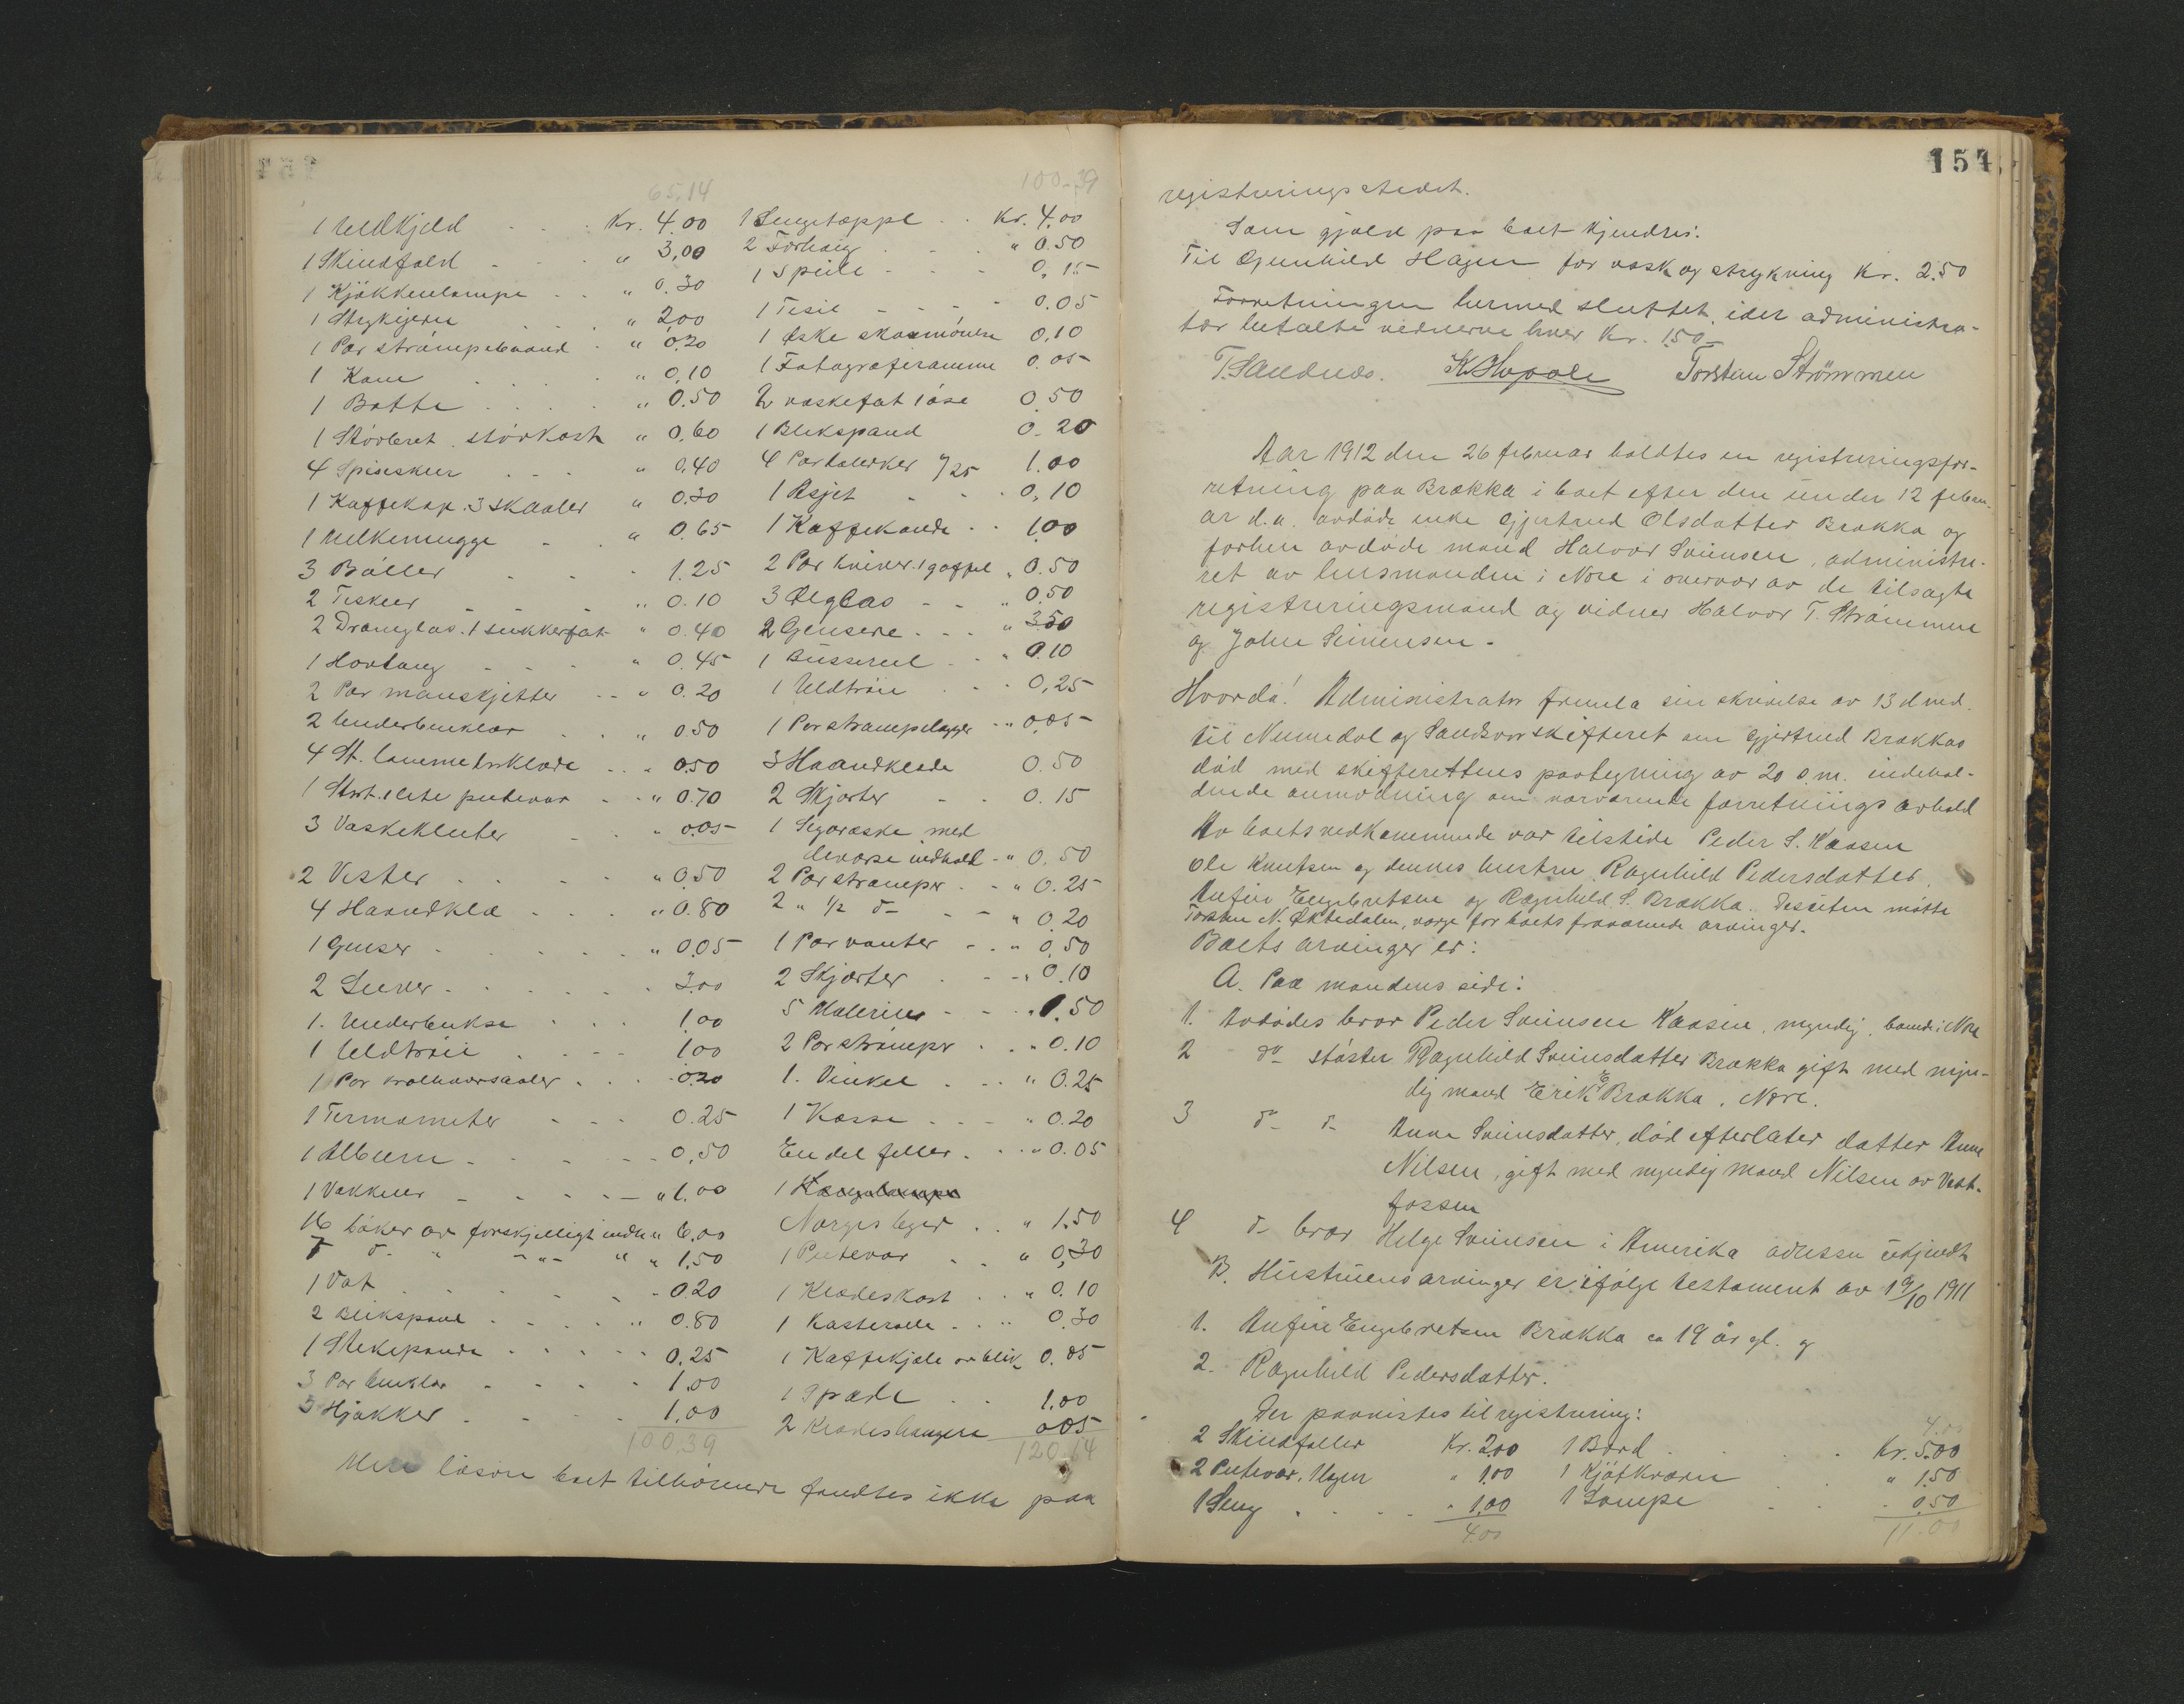 65,14
1 Uldkjeld Kr. 4.00
1 Skindfeld " 3,00
1 Kjøkkenlampe " 0.30
1 Strykejern " 2.00
1 Par strømpebaand " 0.20
1 Kam " 0,10
1 Bøtte " 0.50
1 Störkost " 0.60
4 Spiseskeer " 0,40
1 Kaffekop. 3 skaaler " 0.30
1 Melkemugge " 0.65
3 Boller 1.25
2 Teskeer " 0.10
2 Dramglas. 1 sukkerfat " 0.40
1 Hovtang " 0.45
2 Par manskjetter " 0.20
2 Underbenklær " 0.50
4 St. lommetørklæde 0.50
1 Stort. 1 lite putevar " 0.70
3 Vaskekluter " 0.05
2 Vester " 0.50
4 Haandklæ " 0.80
1 Genser " 0.05
2 Luer 3.00
1. Underbukse 1.00
1 Uldtrøie 1.00
1 Par 0.20
1 Termometer 0.25
1 Album 0,50
1 Vækker " 1.00
16 bøker av forskjelligt indh " 6,00
7 d- " -"- " " 1,50
1 Vat 0.20
2 Blikspand " 0.80
1 Stekepande 0.25
3 Par benklær 1.00
3 Hjakker 1.00
100,39
100-39
1 Sengetæppe Kr. 4.00
2 Forhæng " 0.50
1 Speile 0,15
1 Tesil 0.05
1 Æske skosmørelse 0,10
1 Fotografiramme 0.05
2 vaskefat 1 øse 0.50
1 Blikspand 0.20
4 Par tallerker 1/25 1.00
1 Asjet 0,10
1 Kaffekande 1.00
2 Par kniver. 1 gaffel " 0.50
3 Ølglas " 0.50
2 Gensere " 3.50
1 Busserul " 0.10
1 Uldtrøie 0,25
1 Par strømpelegger " 0,05
3 Haandklæde 0.50
2 Skjorter 0.15
1 Sigaræske med
diverse indhold " 0,50
2 Par strømper " 0.25
2 " 1/2 d- " 0.20
1 Par vanter " 0,50
2 Skjorter " 0.10
5 Malerier 1.50
2 Par strømper " 0.10
1. Vinkel " 0.25
1 Kasse " 0.20
En del feller " 0.05
1 Hængelampe
Norges leger " 1.50
1 Putevar " 0,30
1 Klædeskost " 0.10
1 Kasterolle " 0,30
1 Kaffekjele av blik 0.05
1 Spade 1.00
2 Klædeshængere 0.05
120.64
Mere løsøre boet tilhørende fandtes ikke paa
154.
registreringsstedet.
Som gjæld paa boet kjendtes:
Til Gunhild Hagen for vask og strykning Kr. 2.50
Forretningen hermed sluttet, idet administra-
tor betalte vidnerne hver Kr. 1.50-
T. Sandnes. Torstein Strømmen
Aar 1912 den 26 februar holdtes en registreringsfor-
retning paa Brække i boet efter den under 12 febru-
ar d.a. avdøde enke Gjertrud Olsdatter Brække og
forhen avdøde mand Halvor Sveinsen, administre-
ret av lensmanden i Nore i overvær av de tilsagte
registreringsmænd og vidner Halvor T. Strømmen
og John Simensen.
Hvorda! Administrator fremla sin skrivelse av 13 d md.
til Numedal og Sandsvær skifteret om Gjertrud Brækkas
død med skifterettens paategning av 20 s.m. indehol-
dende anmodning om nærværende forretnings avhold
Av boets vedkommende var tilstede Peder S. Kaasen
Ole Knutsen og dennes hustru Ragnhild Pedersdatter,
Anfin Engebretsen og Ragnhild S. Brække. Desuten møtte
Torsten N. Øktedalen, verge for boets fraværende arvinger.
Boets arvinger er:
A. Paa mandens side:
1. Avdødes bror Peder Sveinsen Kaasen, myndig, bonde i Nore
2 do søster Ragnhild Sveinsdatter Brække gift med myn-
dig mand Erik E Brække, Nore.
3 d- d- Anne Sveinsdatter, død efterlater datter Anne
Nilsen, gift med myndig mand Nilsen av Vest-
fossen
4 d- bror Helge Sveinsen i Amerika adresse ukjendt
B. Hustruens arvinger er ifølge testament av 19/10 1911
1. Anfin Engebretsen Brække ca 19 år gl. og
2. Ragnhild Pedersdatter.
Der paavistes til registrering:
4.00
2 Skindfeller Kr. 2.00 1 Bord Kr. 5.00
2 Putevar, Hagen " 1.00 1 Kjøtkværn " 1.50
1 Seng " 1.00 1 Lampe " 0.50
4.00 11.00